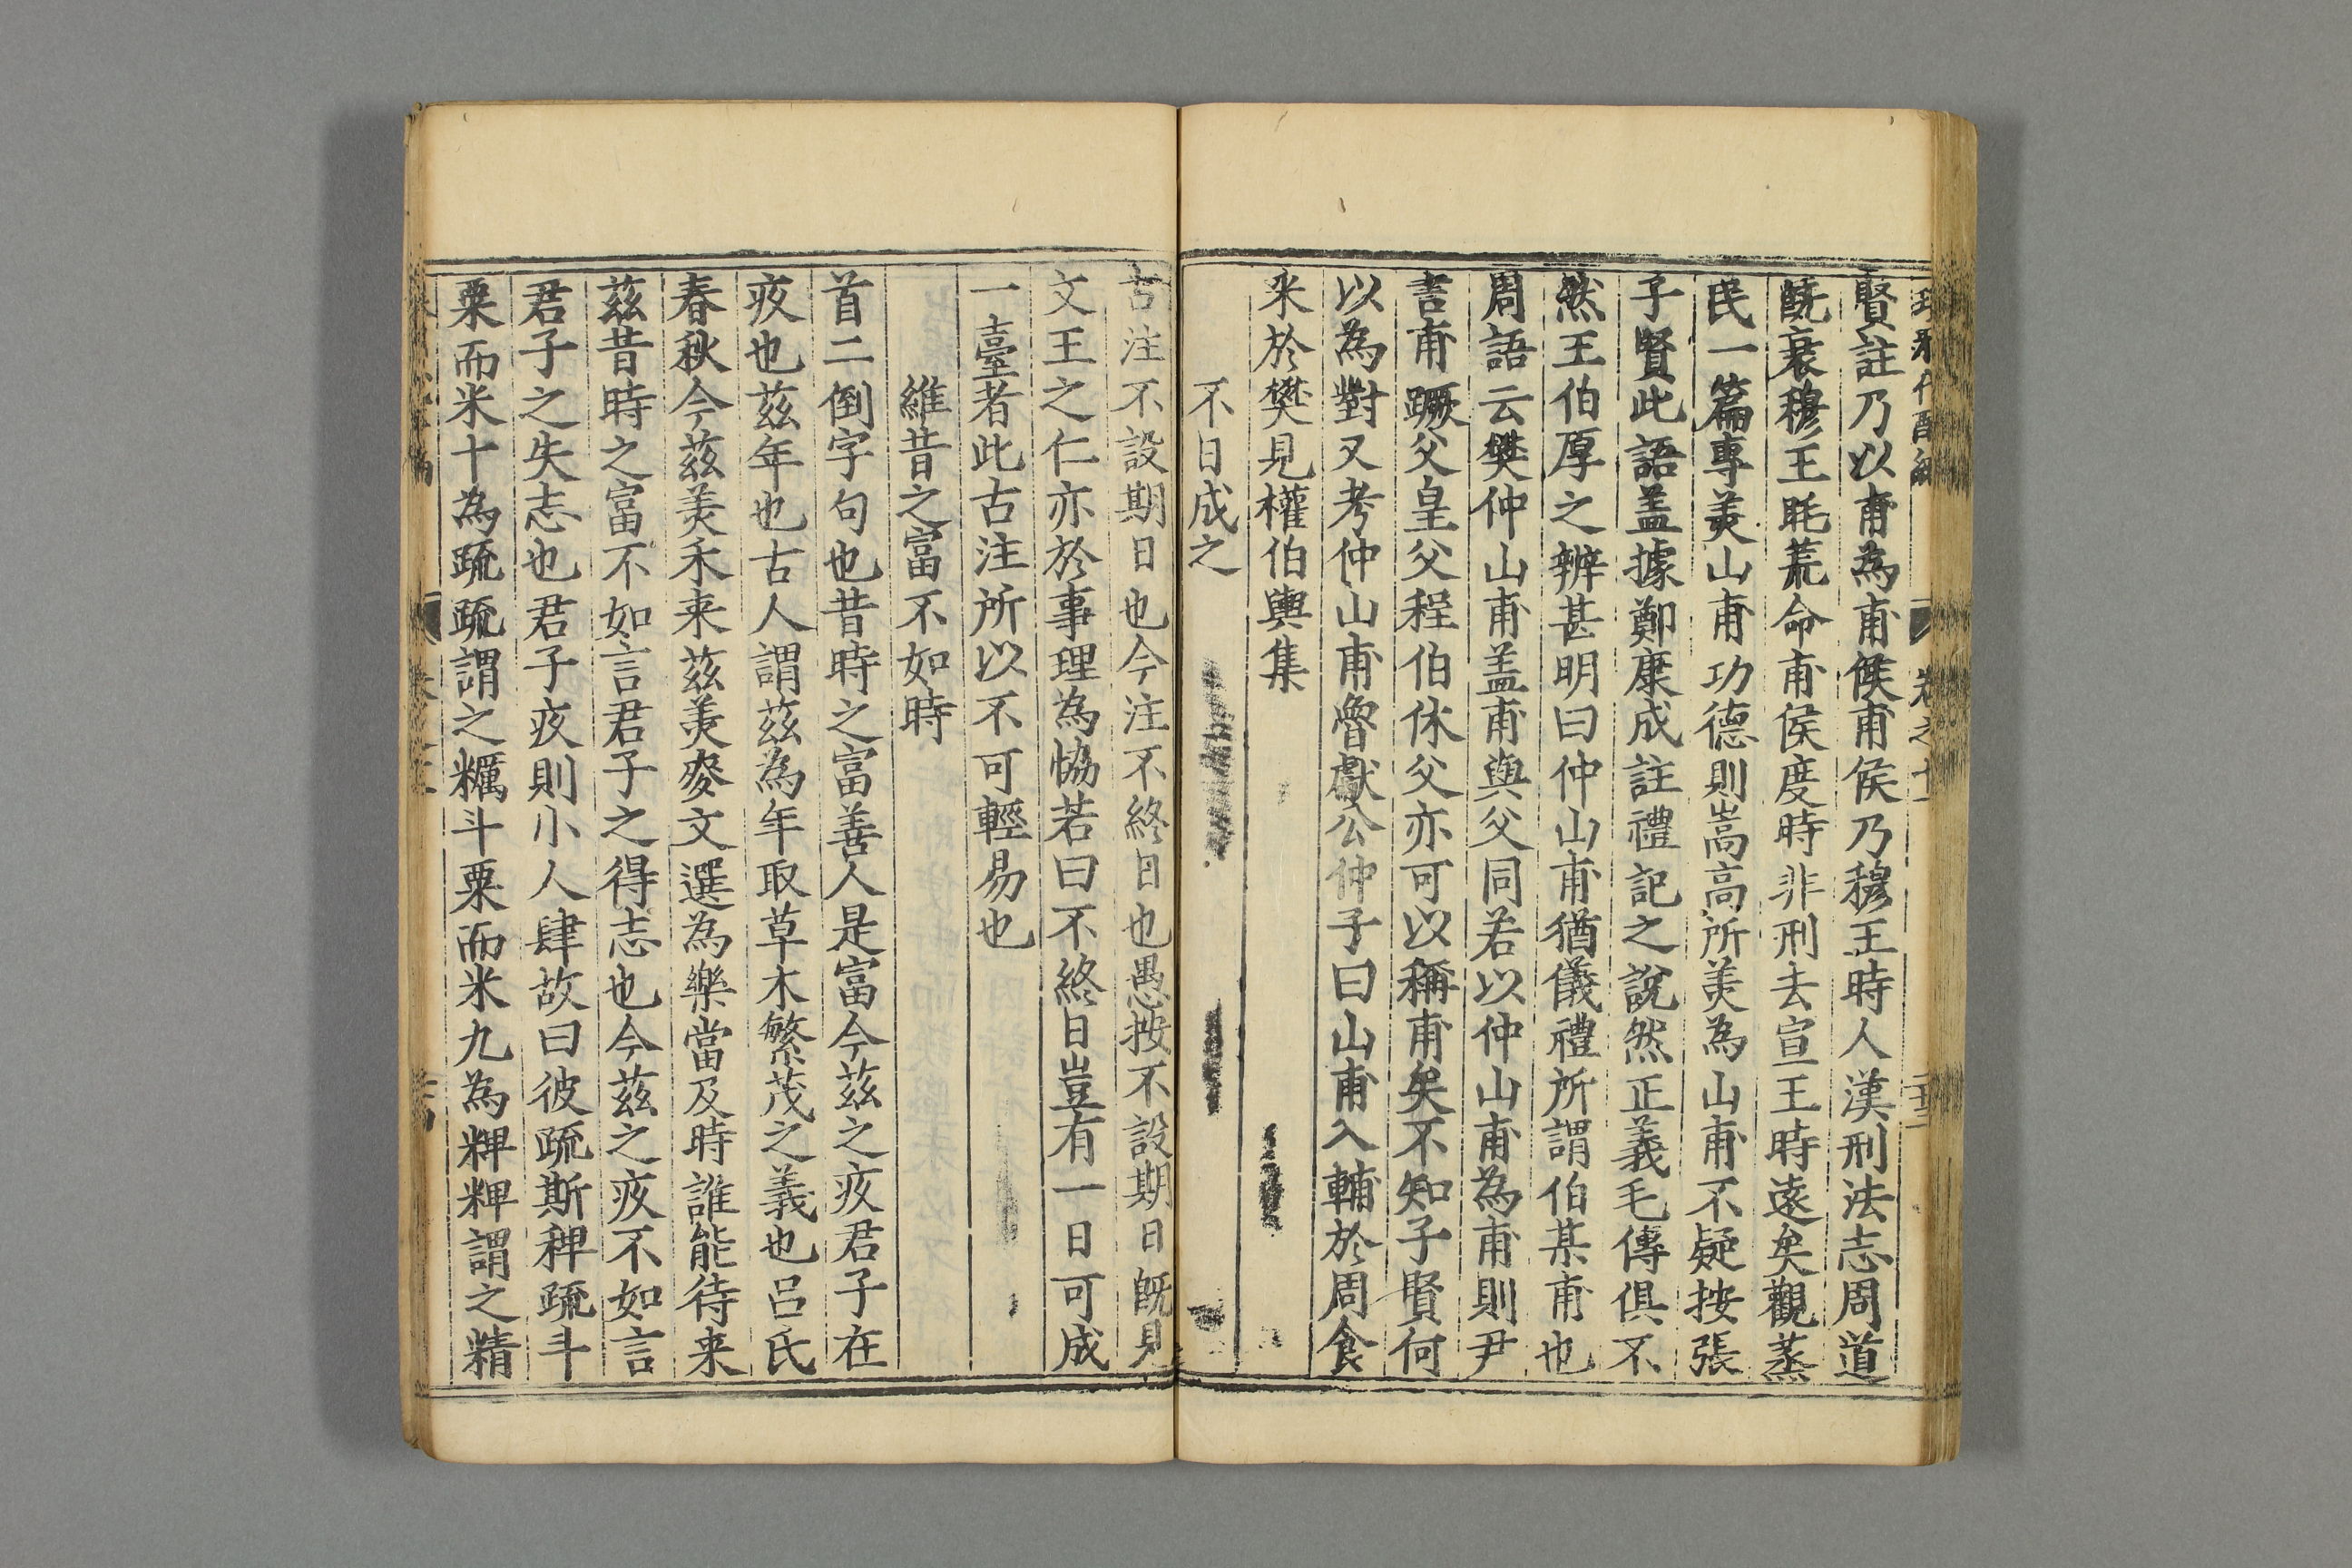 賢註乃以甫為甫侯甫侯乃穆王時人漢刑法志周道
既衰穆王眊荒命甫侯度時非刑去宣王時遠矣觀蒸
民一篇專美山甫功德則嵩高所美為山甫不疑按張
子賢此語盖據鄭康成註禮記之說然正義毛傳俱不
然王伯厚之辨甚明曰仲山甫猶儀禮所謂伯某甫也
周語云樊仲山甫盖甫與父同若以仲山甫為甫則尹
吉甫蹶父皇父程伯休父亦可以稱甫矣不知子賢何
以為對又考仲山甫魯獻公仲子曰山甫入輔於周食
采於樊見權伯輿集
不日成之
古注不設期日也今注不終日也愚按不設期日既見
文王之仁亦於事理為恊若曰不終日豈有一日可成
一臺者此古注所以不可輕易也
維昔之富不如時
首二倒字句也昔時之富善人是富今茲之疚君子在
疚也茲年也古人謂茲為年取草木繁茂之義也呂氏
春秋今茲美禾来茲美麥文選為樂當及時誰能待来
茲昔時之富不如言君子之得志也今茲之疚不如言
君子之失志也君子疚則小人肆故曰彼疏斯稗疏斗
粟而米十為疏疏謂之糲斗粟而米九為粺粺謂之精